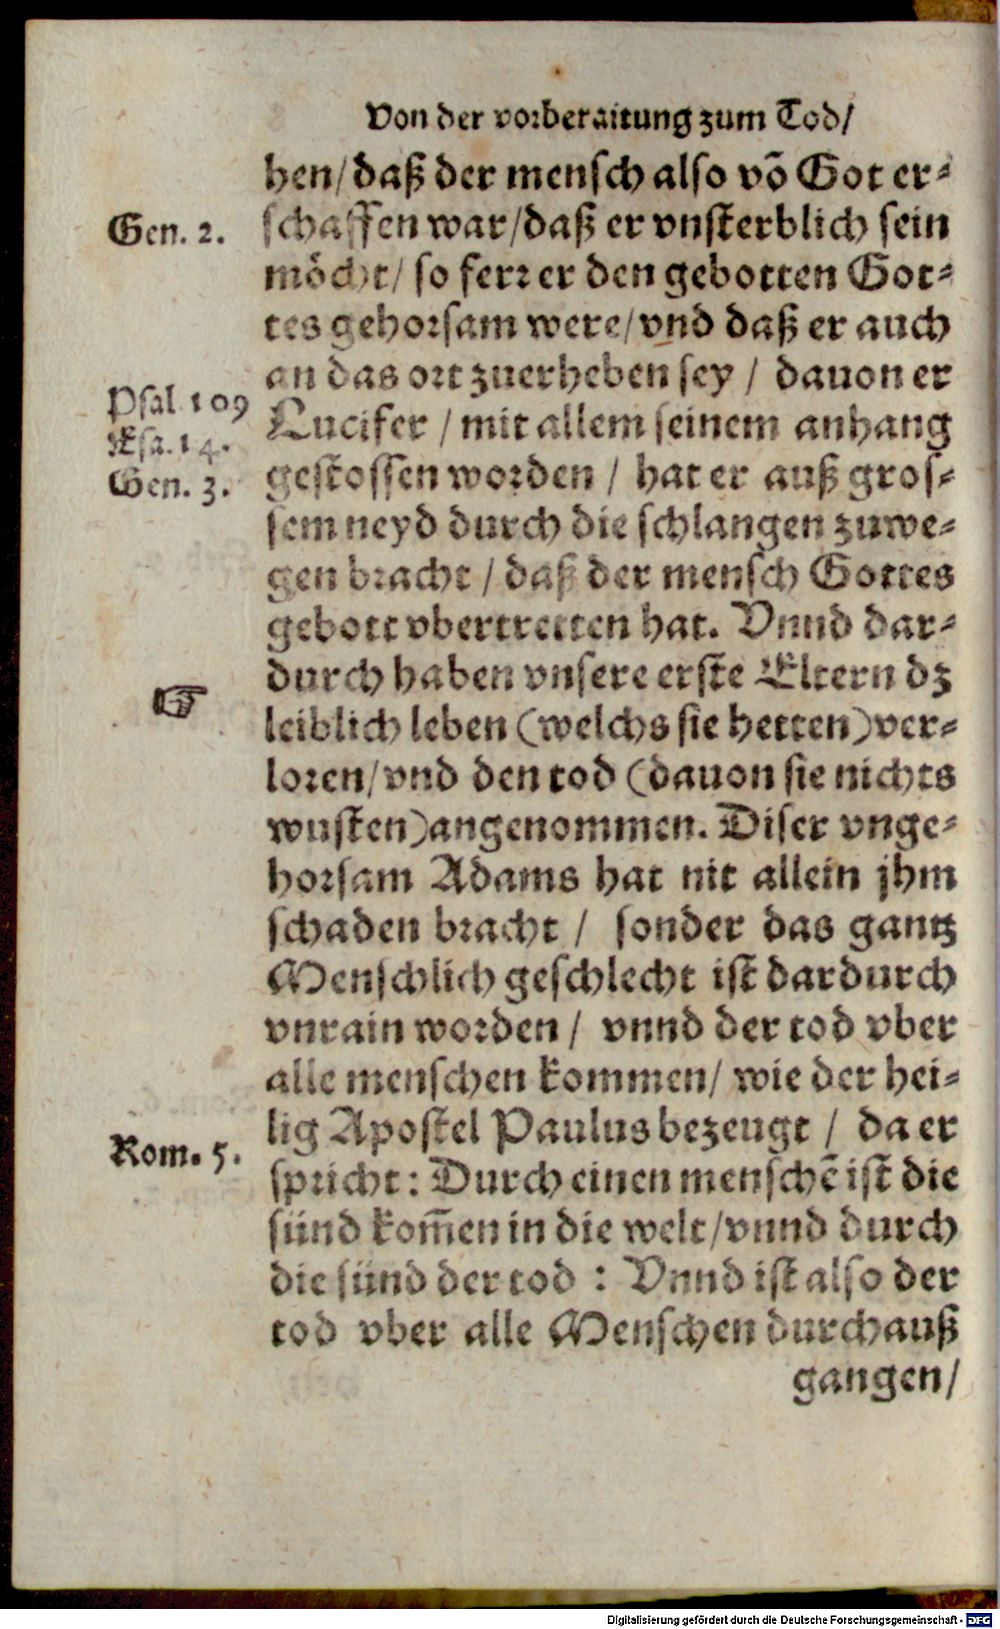 Von der vorberaitung zum Tod/
hen/daß der mensch also võ Got er⸗
Gen. 2.
schaffen war/daß er vnsterblich sein
möcht/ so ferr er den gebotten Got⸗
tes gehorsam were/vnd daß er auch
an das ort zuerheben sey / dauon er
Psal. 109
Lucifer / mit allem seinem anhang
Esa. 14.
gestossen worden / hat er auß gros⸗
Gen. 3.
sem neyd durch die schlangen zuwe⸗
gen bracht / daß der mensch Gottes
gebott vbertretten hat. Vnnd dar⸗
durch haben vnsere erste Eltern dz
☞
leiblich leben (welchs sie hetten) ver⸗
loren/vnd den tod (dauon sie nichts
wusten) angenommen. Diser vnge⸗
horsam Adams hat nit allein jhm
schaden bracht / sonder das gantz
Menschlich geschlecht ist dardurch
vnrain worden / vnnd der tod vber
alle menschen kommen/ wie der hei⸗
lig Apostel Paulus bezeugt / da er
Rom. 5.
spricht: Durch einen menschẽ ist die
sünd kom̃en in die welt/vnnd durch
die sünd der tod : Vnnd ist also der
tod vber alle Menschen durchauß
gangen/
Digitalisierung gefördert durch die Deutsche Forschungsgemeinschaft - DFG